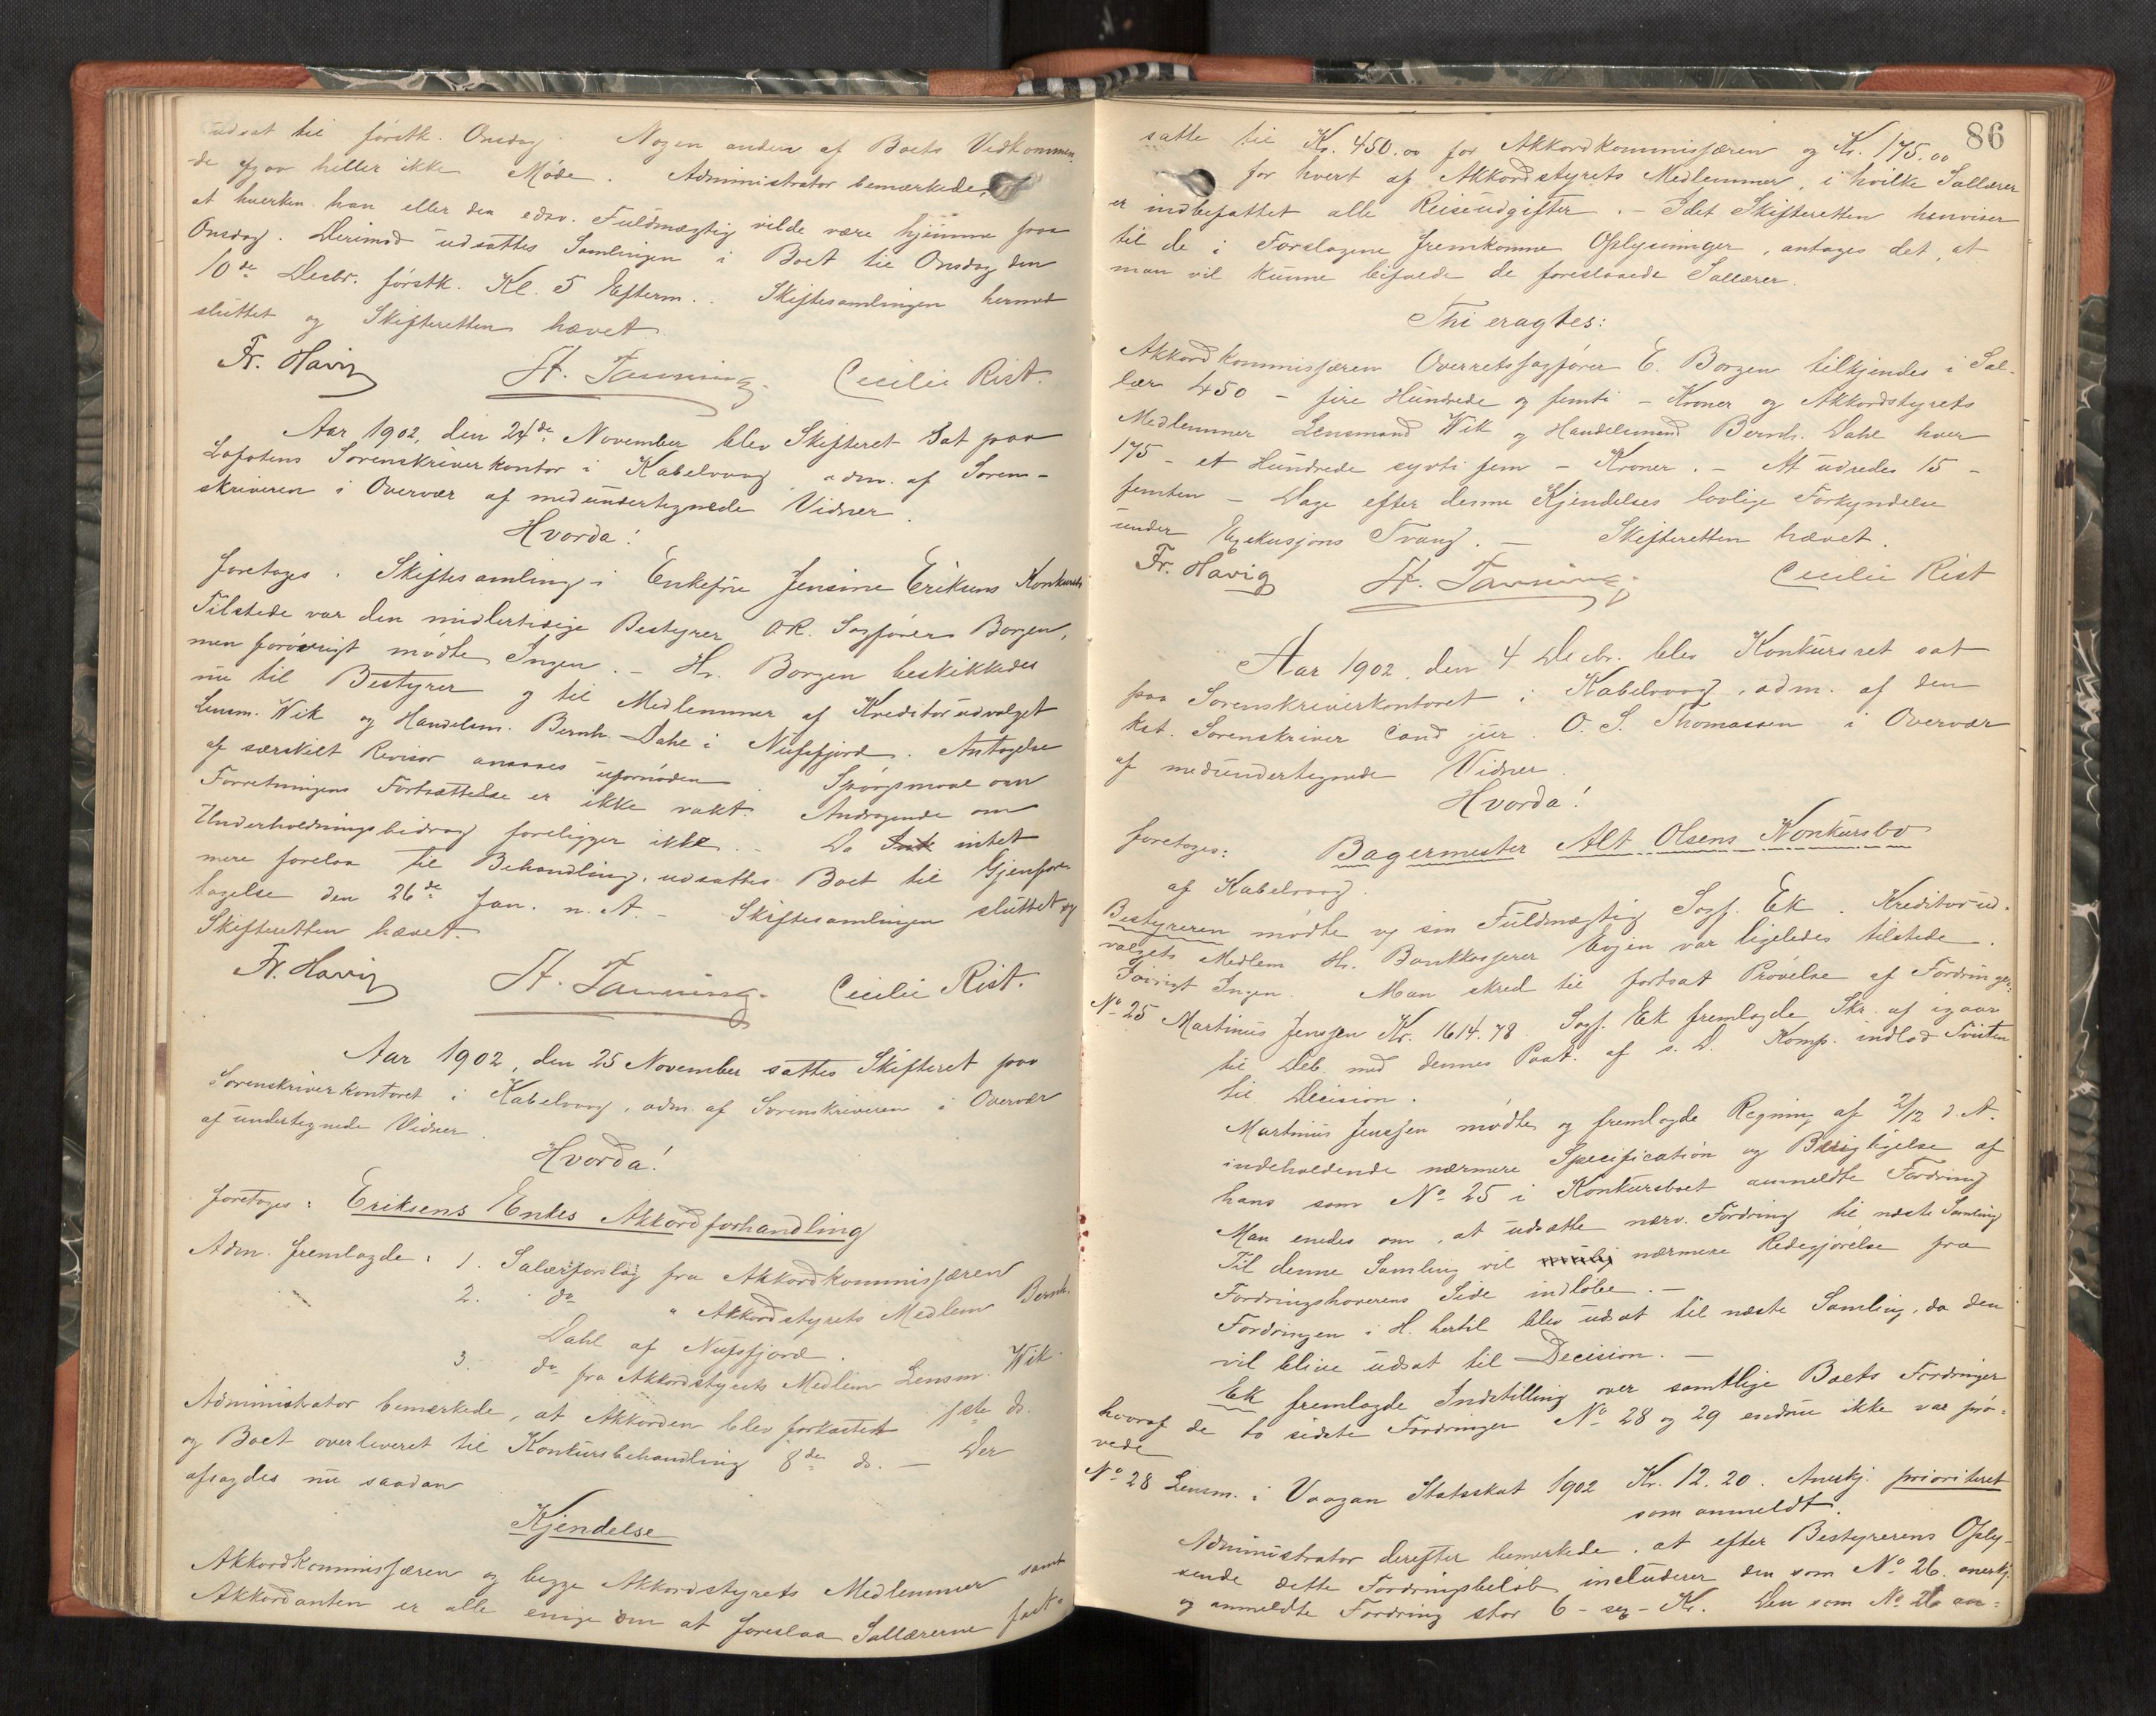 udsat til førstk. Onsdag. Nogen anden af Boets Vedkommen-
de gjav heller ikke Møde. Administrator bemærkede,
at hverken han eller den edsv. Fuldmægtig vilde være hjemme paa
Onsdag. Derimod udsattes Samlingen i Boet til Onsdag den
10de Decbr. førstk. Kl. 5 Efterm.. Skiftesamlingen hermed
sluttet og Skifteretten hævet.
Fr. Havig H. Tanning. Cecilie Rist.
Aar 1902, den 24de November blev Skifteret sat paa
Lofotens Sorenskriverkontor i Kabelvaag adm. af Soren-
skriveren i Overvær af medundertegnede Vidner.
Hvorda!
foretoges. Skiftesamling i Enkefru Jensine Eriksens Konkursbo
Tilstede var den midlertidige Bestyrer O.R. Sagfører Borgen,
men forøvrigt mødte Ingen. – Hr. Borgen beskikkedes
nu til Bestyrer og til Medlemmer af Kreditorudvalget
Lensm. Wik og Handelsm. Bernh. Dahl i Nufsfjord. Antagelse
af særskilt Revisor ansaaes ufornøden. Spørgsmaal om
Forretningens Fortsættelse er ikke vakt. Andragende om
Underholdningsbidrag foreligger ikke. – Da intet
mere forelaa til Behandling, udsattes Boet til Gjenfore-
tagelse den 26de Jan. n. A. – Skiftesamlingen sluttet og
Skifteretten hævet.
Fr. Havig H. Tanning. Cecilie Rist.
Aar 1902, den 25 November sattes Skifteret paa
Sorenskriverkontoret i Kabelvaag, adm. af Sorenskriveren i Overvær
af undertegnede Vidner.
Hvorda!
foretoges: Eriksens Enkes Akkordforhandling
Adm. fremlagde: 1. Salærforslag fra Akkordkommissæren
2. do " Akkordstyrets Medlem Bernh.
Dahl af Nufsfjord.
3. do fra Akkordstyrets Medlem Lensm. Wik.
Administrator bemærkede, at Akkorden blev forkastet 1ste ds.
og Boet overleveret til Konkursbehandling 8de ds. – Der
afsagdes nu saadan
Kjendelse
Akkordkommissæren og begge Akkordstyrets Medlemmer samt
Akkordanten er alle enige om at foreslaa Sallærerne fast-
86
satte til Kr. 450.00 for Akkordkommissæren og Kr. 175.00
for hvert af Akkordstyrets Medlemmer, i hvilke Sallærer
er indbefattet alle Reiseudgifter. – Idet Skifteretten henviser
til de i Forslagene fremkomne Oplysninger, antages det, at
man vil kunne bifalde de foreslaaede Sallærer.
Thi eragtes:
Akkordkommissæren Overretssagfører E. Borgen tilkjendes i Sal-
lær 450 – fire Hundrede og femti – Kroner og Akkordstyrets
Medlemmer Lensmand Wik og Handelsmand Bernh. Dahl hver
175 – et Hundrede sytti fem – Kroner. – At udredes 15 –
femten – Dage efter denne Kjendelses lovlige Forkyndelse
under Exekusjons Tvang. – Skifteretten hævet.
Fr. Havig H. Tanning. Cecilie Rist
Aar 1902, den 4 Decbr. blev Konkursret sat
paa Sorenskriverkontoret i Kabelvaag, adm. af den
kst. Sorenskriver Cand. jur. O. S. Thomassen i Overvær
af medundertegnede Vidner.
Hvorda!
foretoges: Bagermester Alt Olsens Konkursbo
af Kabelvaag.
Bestyreren mødte og sin Fuldmægtig Sagf. Ek. Kreditorud-
valgets Medlem Hr. Bankkasserer Evjen var ligeledes tilstede.
Føvrigt Ingen. Man skred til fortsat Prøvelse af Fordringer:
No 25 Martinus Jenssen Kr. 1614.78. Sagf. Ek fremlagde Skr. af igaar
til Deb. med dennes Paat. af s. D. Komp. indlod Tvisten
til Decision.
Martinus Jenssen mødte og fremlagde Regning af 2/12 d. A.
indeholdende nærmere Specification og Berigtigelse af
hans som No 25 i Konkursboet anmeldte Fordring
Man enedes om, at udsætte nærv. Fordring til næste Samling
Til denne Samling vil nærmere Redegjørelse fra
Fordringshaverens Side indløbe. –
Fordringen i H. hertil blev udsat til næste Samling, da den
vil blive udsat til Decision. –
Ek fremlagde Indstilling over samtlige Boets Fordringer
hvoraf de to sidste Fordringer No 28 og 29 endnu ikke var prø-
vede
No 28 Lensm. i Vaagan Statsskat 1902 Kr. 12.20. Anerkj. prioriteret
som anmeldt.
Administrator derefter bemærkede, at efter Bestyrerens Oply-
sende dette Fordringsbeløb includerer den som No 26 anerkj.
og anmeldte Fordring stor 6 – sex – Kr. Den som No 26 an-